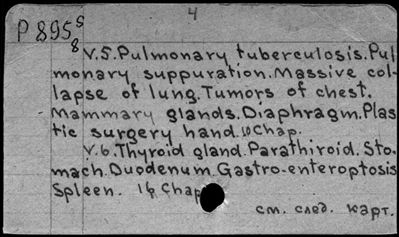 4
P 895s
8
V.5.Pulmonary tuberculosis.Pul
monary suppuration.Massive col-
lapse of lung.Tumors of chest.
Mammary glands.Diaphragm.Plas
tic surgery hand.10Chap.
V.6.Thyroid gland.Parathiroid.Sto-
mach.Duodenum.Gastro-enteroptosis
Spleen. 16 Chap
см. след. карт.